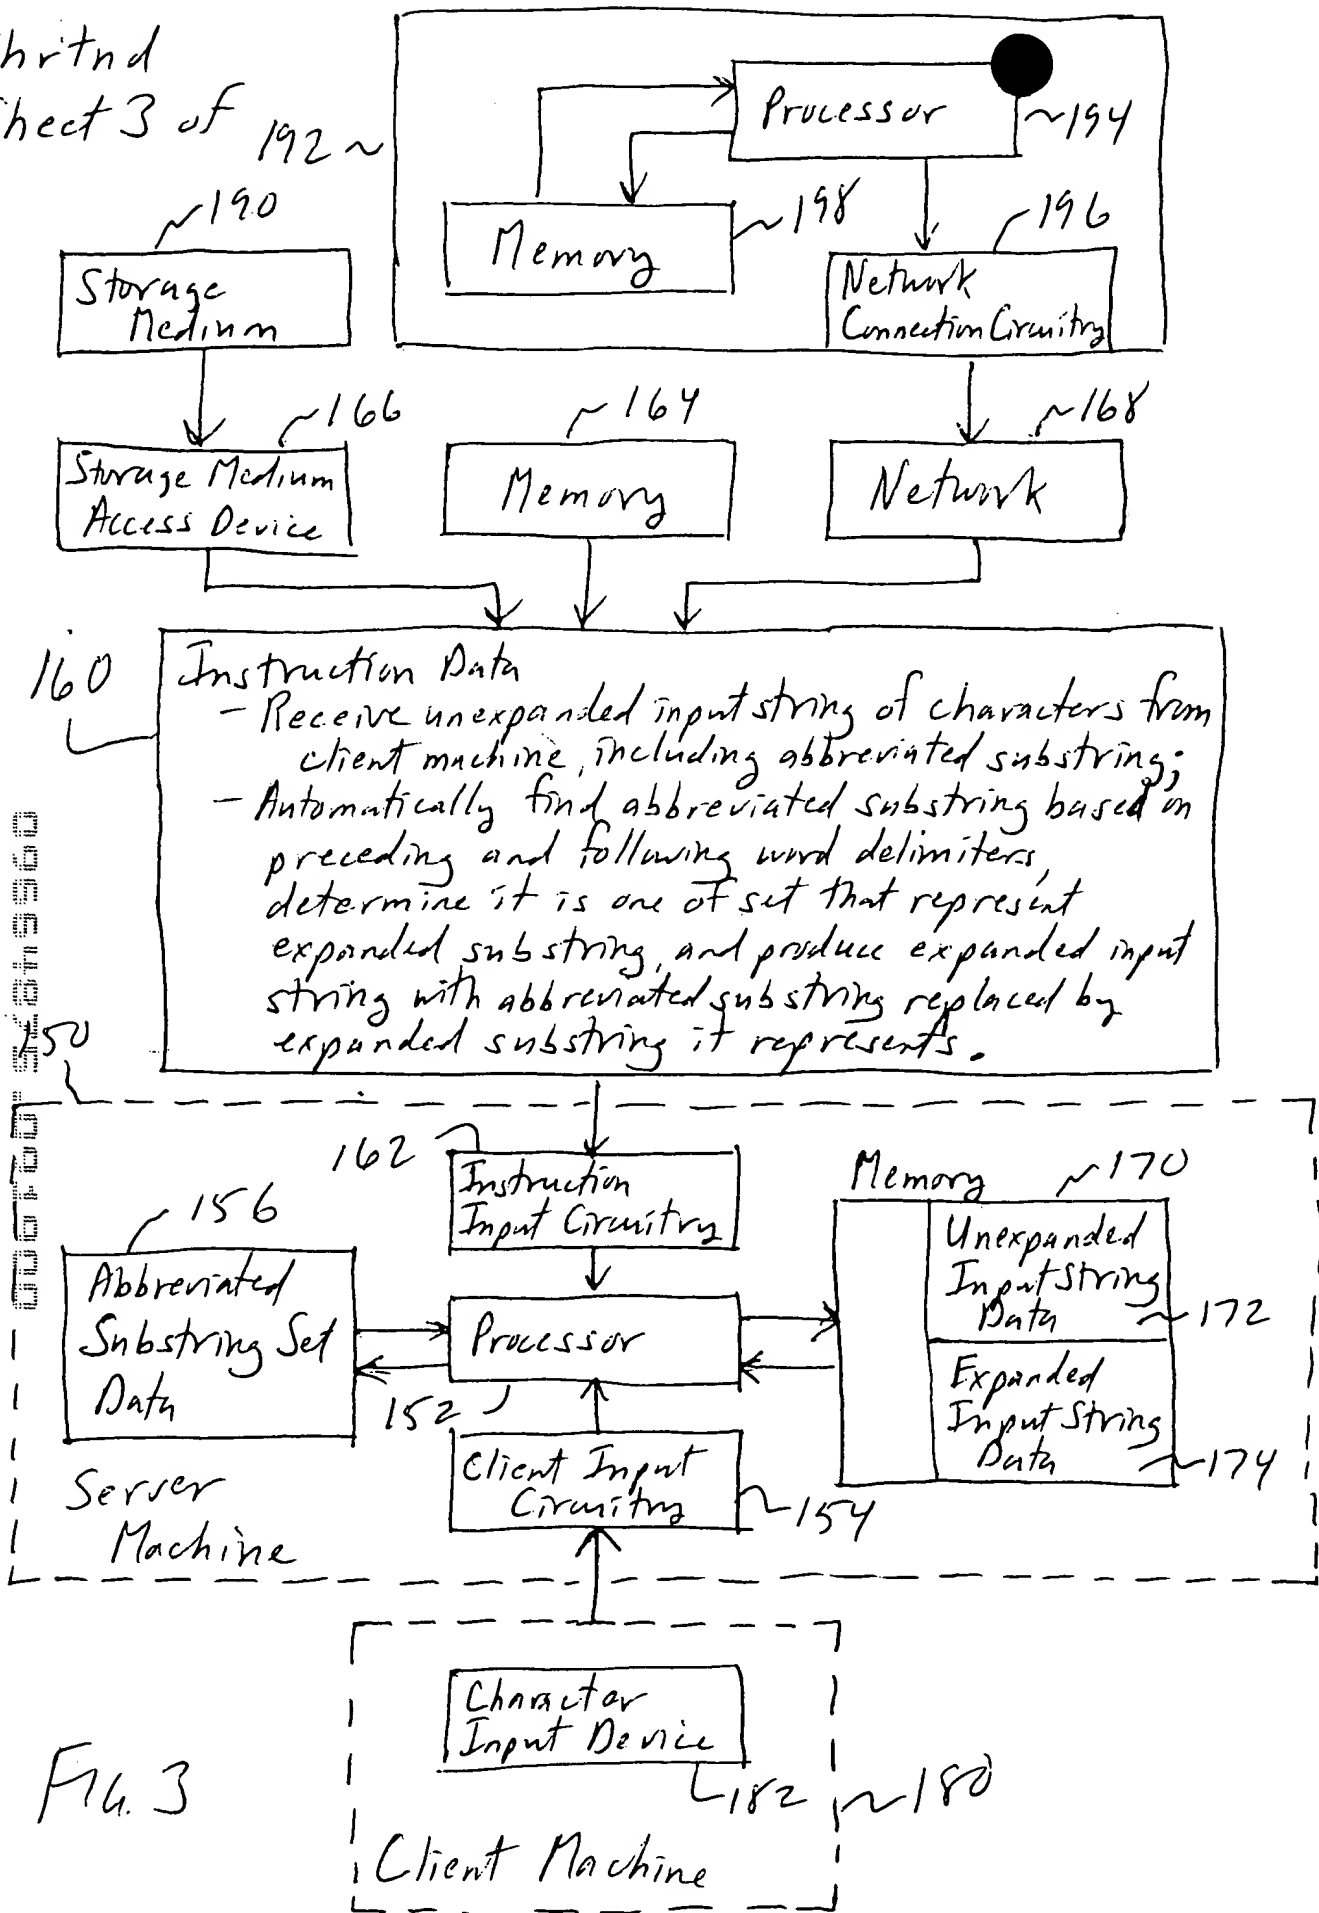 Sheet 3 of
192
Processor
194
Memory
198
196
Network
Connection Circuitry
190
Storage
Medium
166
Storage Medium
Access Device
164
Memory
168
Network
160
Instruction Data
- Receive unexpanded input string of characters from
client machine, including abbreviated substring;
- Automatically find abbreviated substring based on
preceding and following word delimiters,
determine it is one of set that represent
expanded substring, and produce expanded input
string with abbreviated substring replaced by
expanded substring it represents.
150
162
Instruction
Input Circuitry
156
Abbreviated
Substring Set
Data
Processor
152
Memory
170
Unexpanded
Input String
Data
172
Expanded
Input String
Data
174
Client Input
Circuitry
154
Server
Machine
Character
Input Device
182
180
Client Machine
FIG. 3